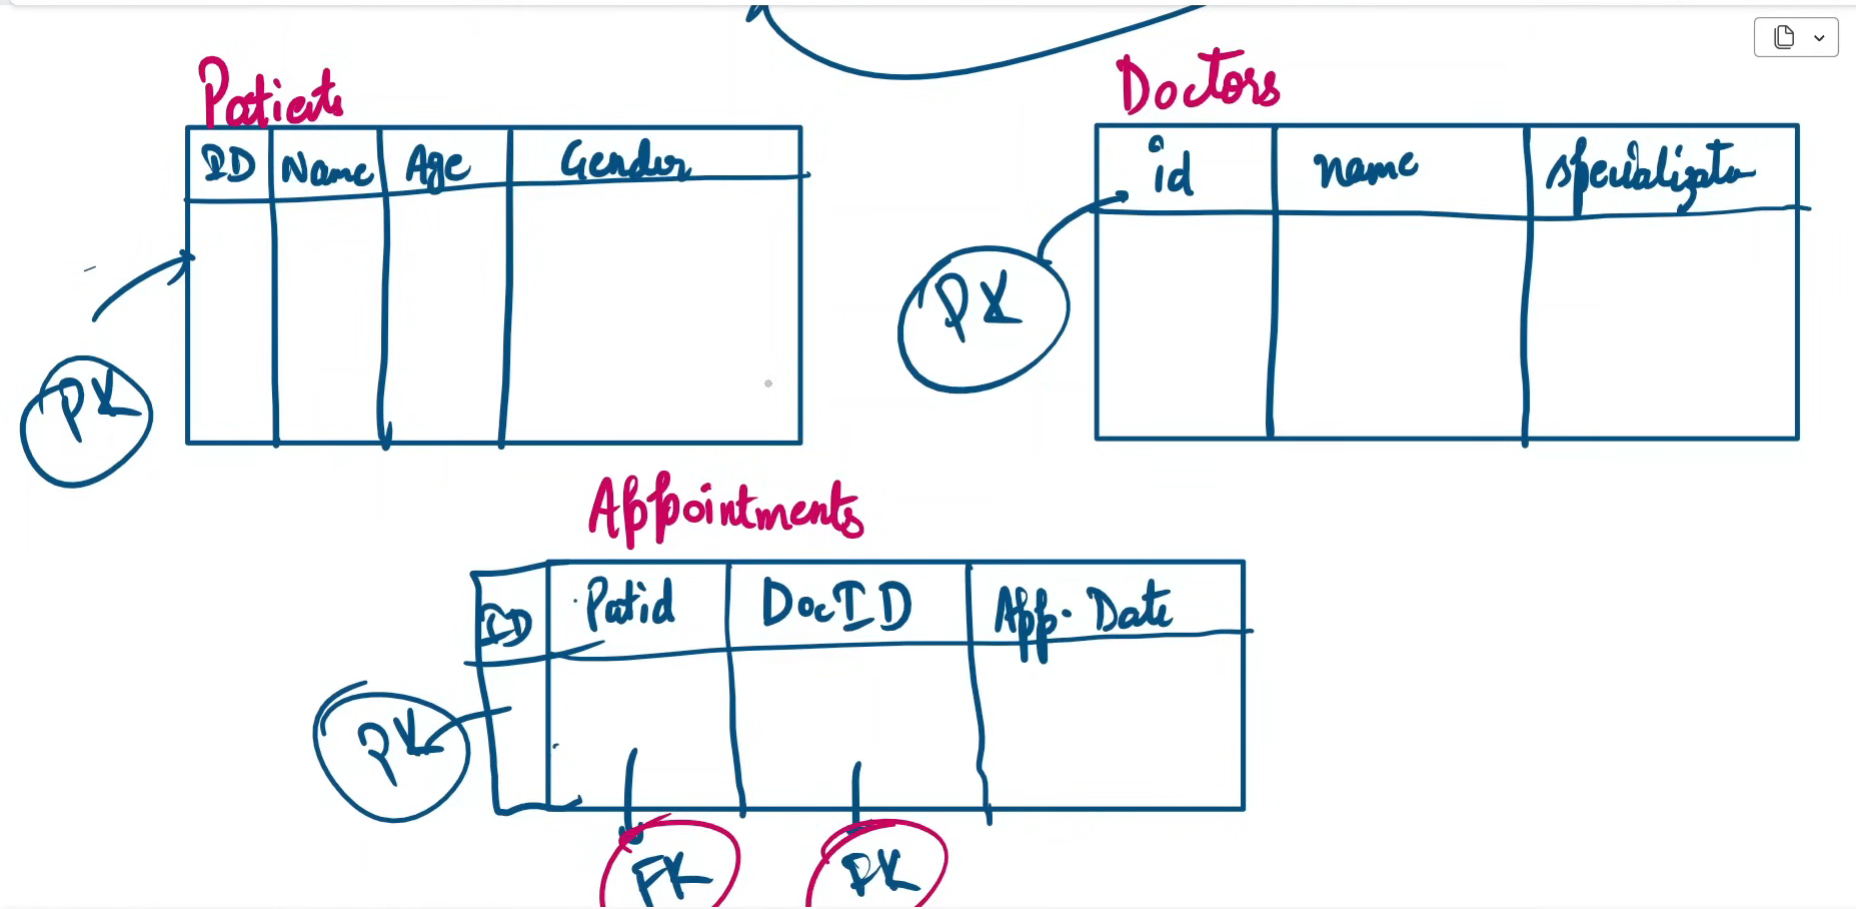 Patients
ID Name Age Gender
PK
Doctors
id name specializatn
PK
Appointments
ID Patid DocID App. Date
PK
FK
FK